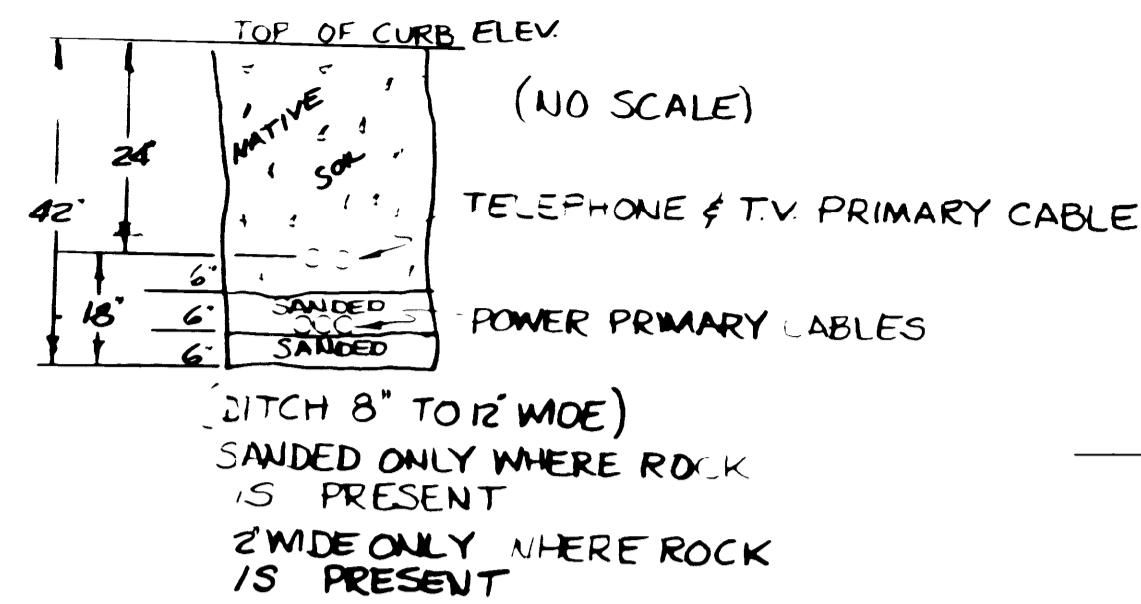 TOP OF CURB ELEV.
(NO SCALE)
NATIVE
SOIL
24"
42"
TELEPHONE & T.V. PRIMARY CABLE
6"
18"
6"
SANDED
POWER PRIMARY CABLES
6"
SANDED
(DITCH 8" TO 12" WIDE)
SANDED ONLY WHERE ROCK
IS PRESENT
2' WIDE ONLY WHERE ROCK
IS PRESENT